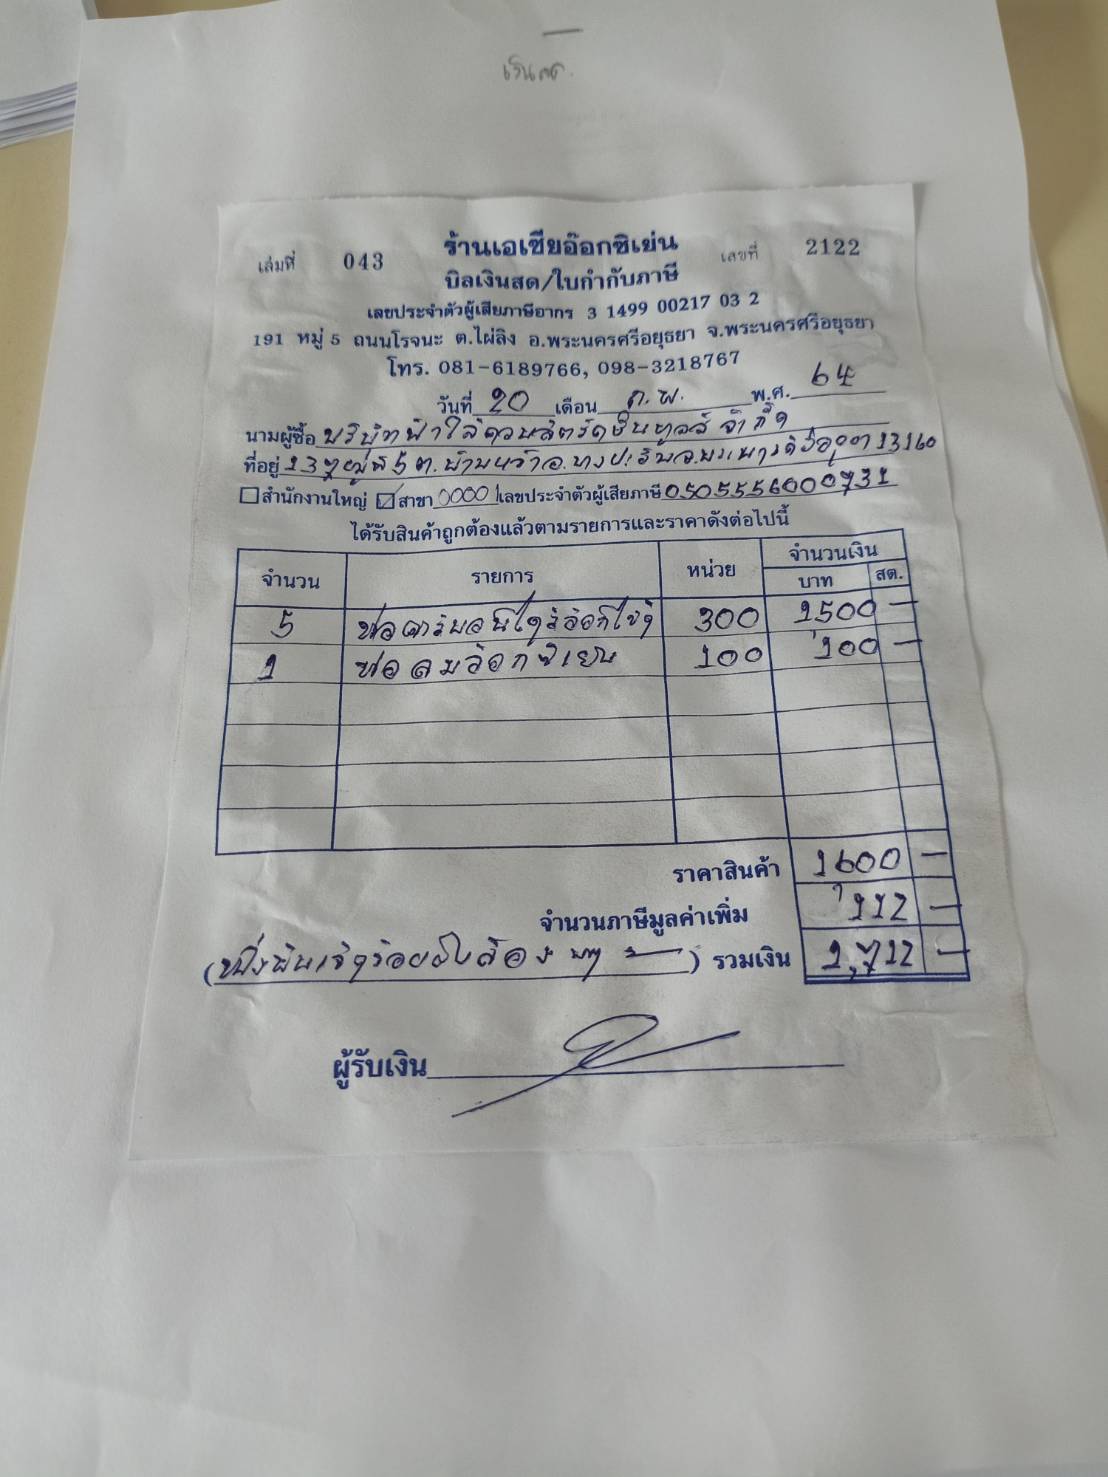 เงินสด
ร้านเอเซียอ๊อกซิเย่น
เล่มที่ 043 เลขที่ 2122
บิลเงินสด/ใบกำกับภาษี
เลขประจำตัวผู้เสียภาษีอากร 3 1499 00217 03 2
191 หมู่ 5 ถนนโรจนะ ต.ไผ่ลิง อ.พระนครศรีอยุธยา จ.พระนครศรีอยุธยา
โทร. 081-6189766, 098-3218767
วันที่ 20 เดือน ก.พ. พ.ศ. 64
นามผู้ซื้อ บริษัท จำกัด
ที่อยู่ 137 หมู่ที่ 5 ต. อ.บางปะอิน จ. 13160
สำนักงานใหญ่ สาขา 0000 เลขประจำตัวผู้เสียภาษี 0505556000731
ได้รับสินค้าถูกต้องแล้วตามรายการและราคาดังต่อไปนี้
จำนวน รายการ หน่วย จำนวนเงิน
บาท สต.
5 ท่อคาร์บอนไดร์อ๊อกไซด์ 300 1500 -
1 ท่อลมอ๊อกซิเย่น 100 100 -
ราคาสินค้า 1600 -
จำนวนภาษีมูลค่าเพิ่ม 112 -
(หนึ่งพันเจ็ดร้อยสิบสองบาท) รวมเงิน 1,712 -
ผู้รับเงิน